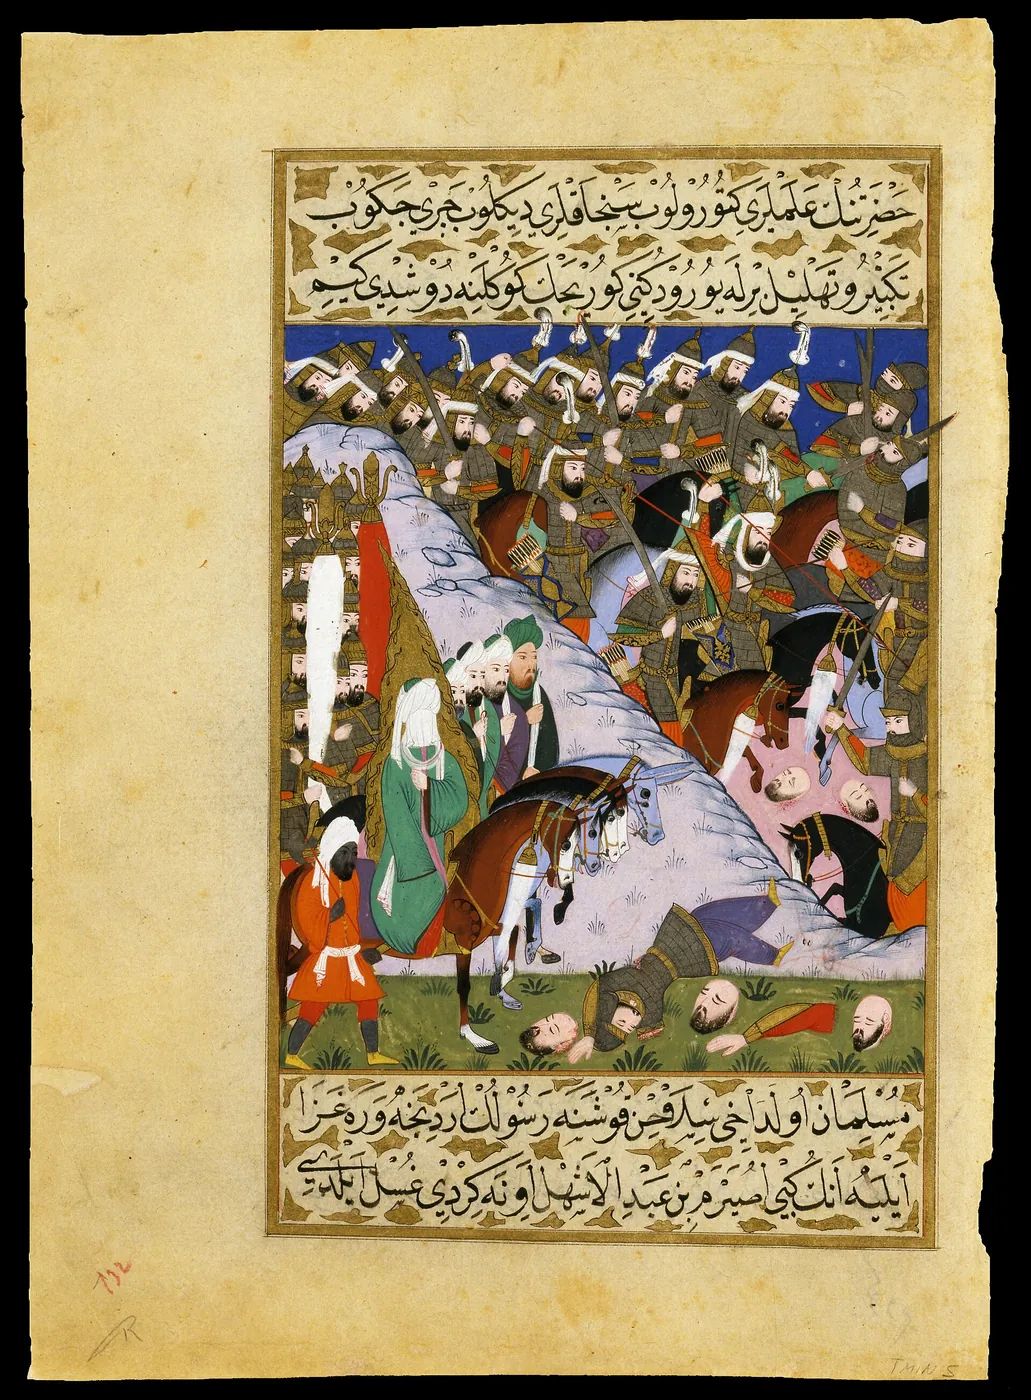 حضرتنك علملري كتورولوب سنجاقلري ديكلوب جري جكوب
تكبير و تهليل برله يورودكني كوريجك كوكلينه دوشدي كيم
مسلمان اولداخي سلاحن قوشنه رسولك اردنجه وره غزا
ايليه انك كبي اصيرم بن عبد الاشهل اونه كردي غسل ايلدي
132
R
TMIN 5